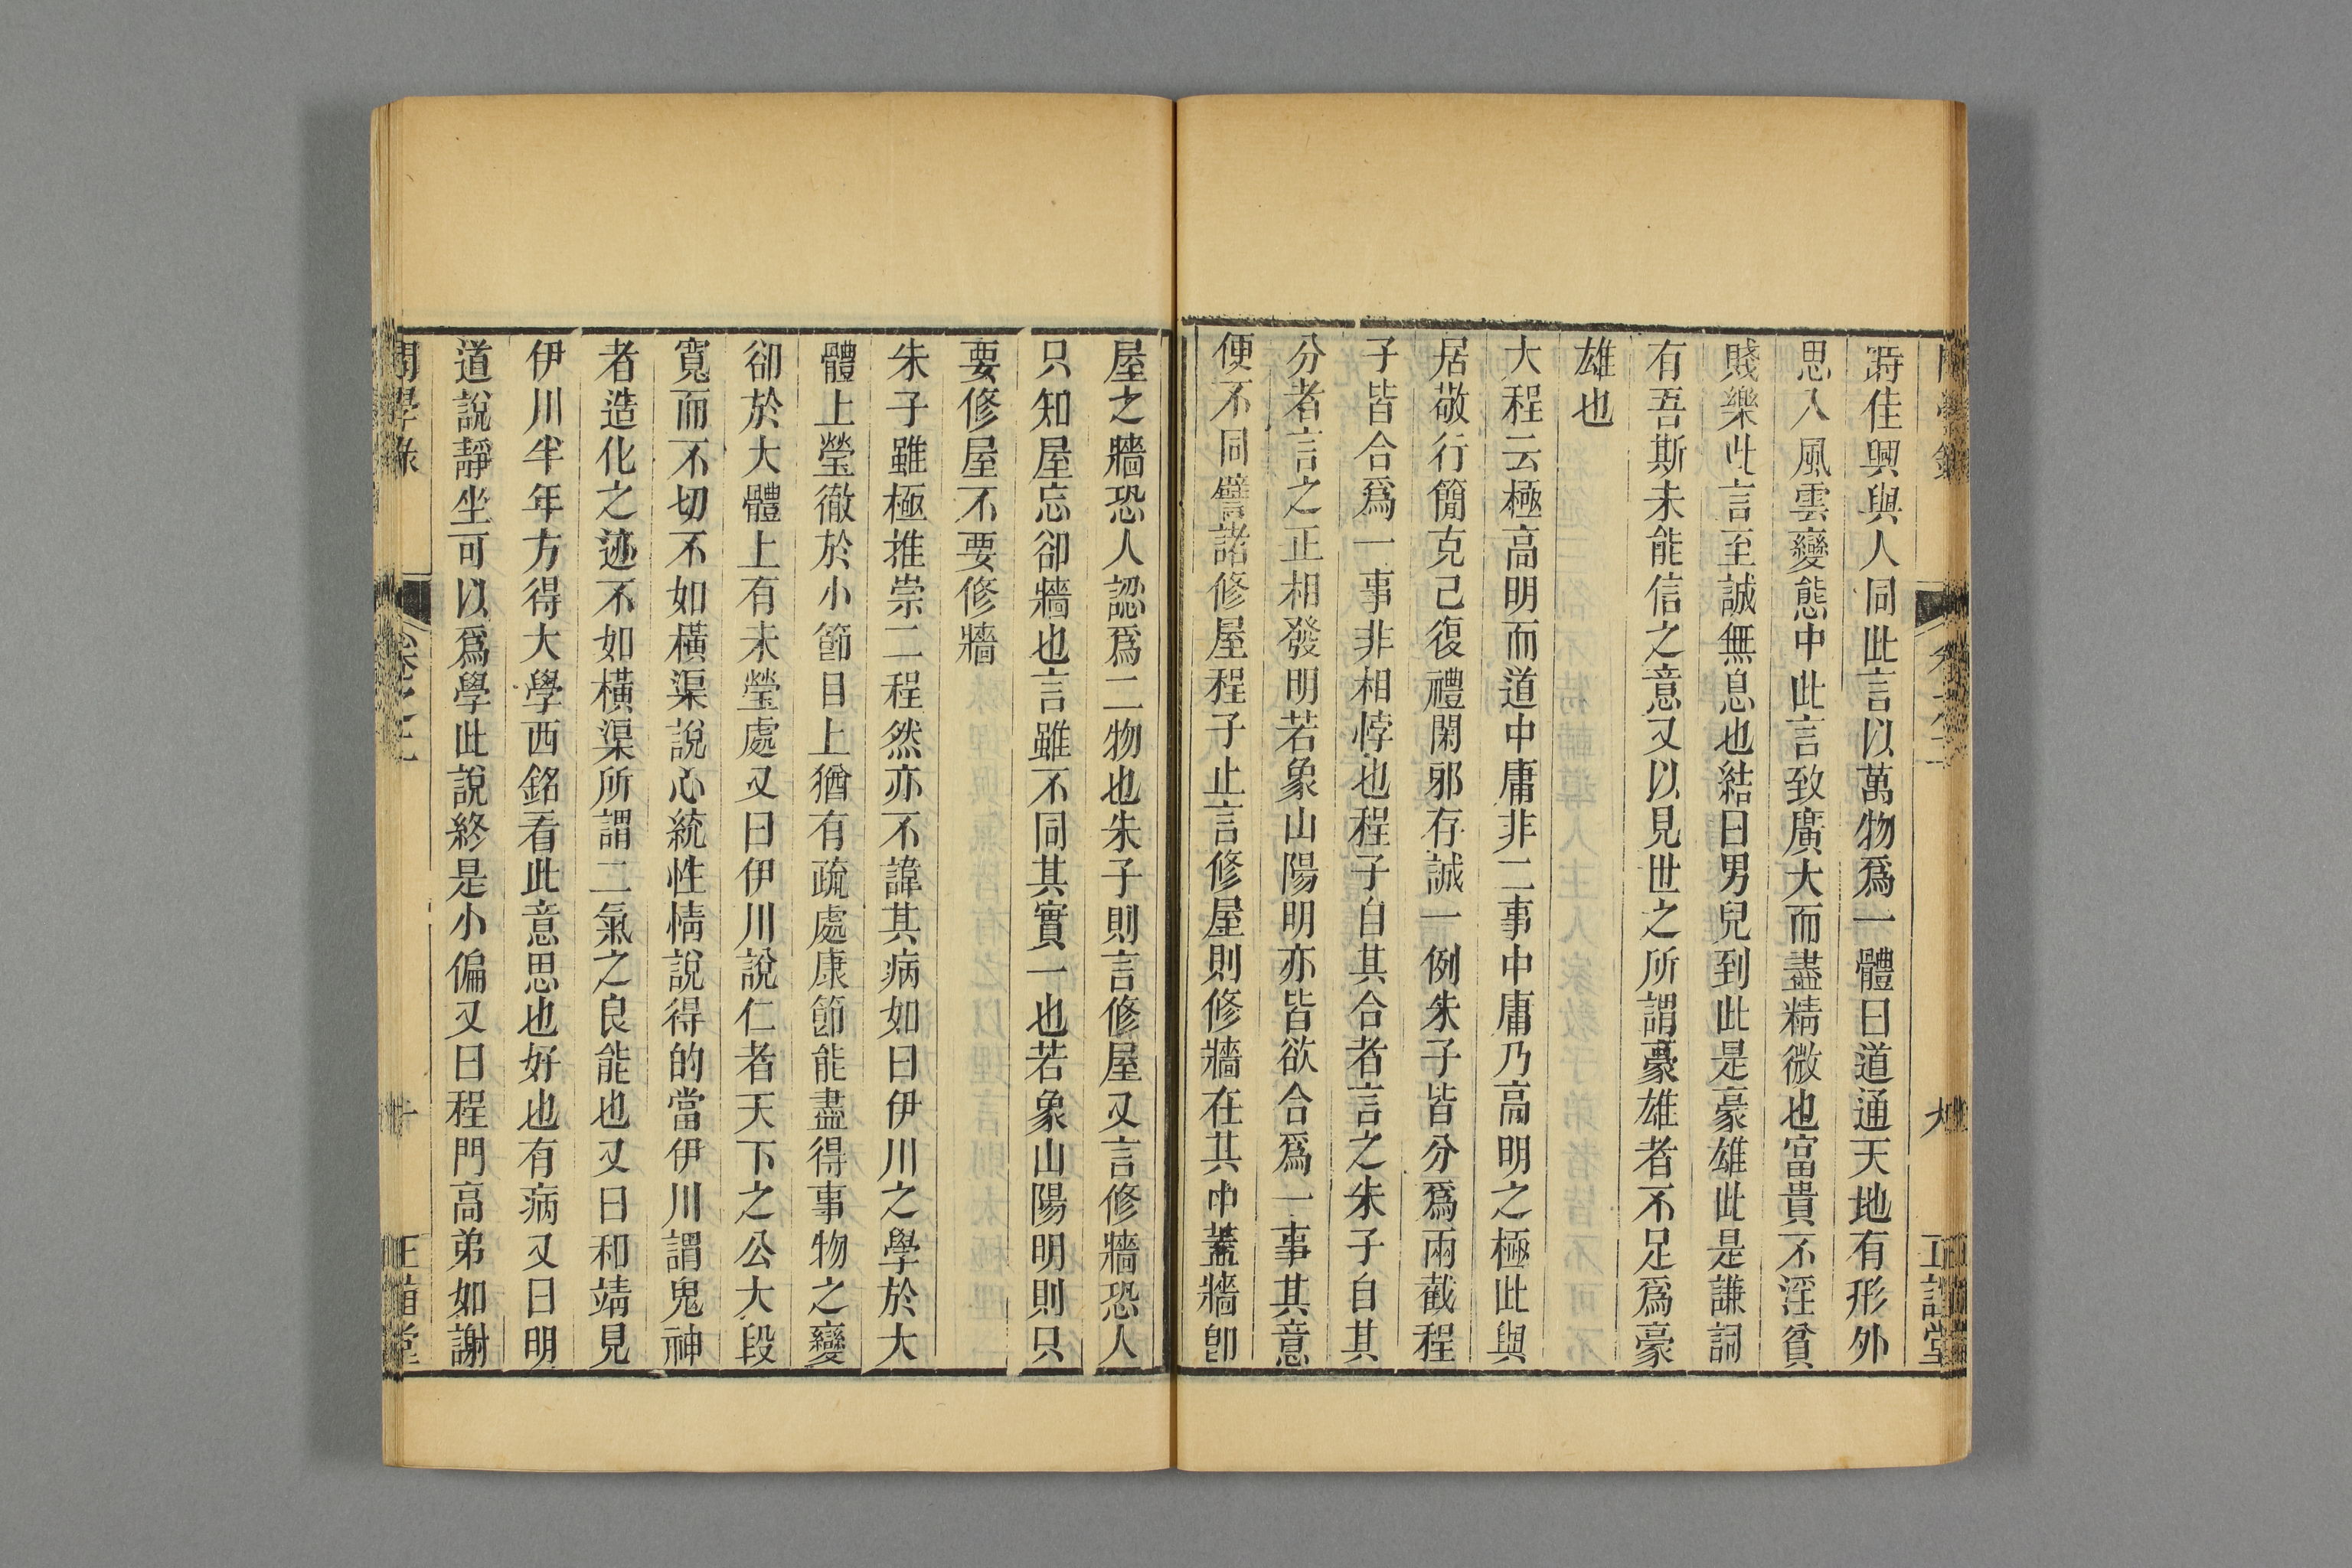 時佳興與人同此言以萬物爲一體曰道通天地有形外
思入風雲變態中此言致廣大而盡精微也富貴不淫貧
賤樂此言至誠無息也結曰男兒到此是豪雄此是謙詞
有吾斯未能信之意又以見世之所謂豪雄者不足爲豪
雄也
大程云極高明而道中庸非二事中庸乃高明之極此與
居敬行簡克己復禮閑邪存誠一例朱子皆分爲兩截程
子皆合爲一事非相悖也程子自其合者言之朱子自其
分者言之正相發明若象山陽明亦皆欲合爲一事其意
便不同譬諸修屋程子止言修屋則修牆在其中蓋牆卽
屋之牆恐人認爲二物也朱子則言修屋又言修牆恐人
只知屋忘卻牆也言雖不同其實一也若象山陽明則只
要修屋不要修牆
朱子雖極推崇二程然亦不諱其病如曰伊川之學於大
體上瑩徹於小節目上猶有疏處康節能盡得事物之變
卻於大體上有未瑩處又曰伊川說仁者天下之公大段
寬而不切不如橫渠說心統性情說得的當伊川謂鬼神
者造化之迹不如橫渠所謂二氣之良能也又曰和靖見
伊川半年方得大學西銘看此意思也好也有病又曰明
道說靜坐可以爲學此說終是小偏又曰程門高弟如謝
問學錄 卷之三 十 正誼堂